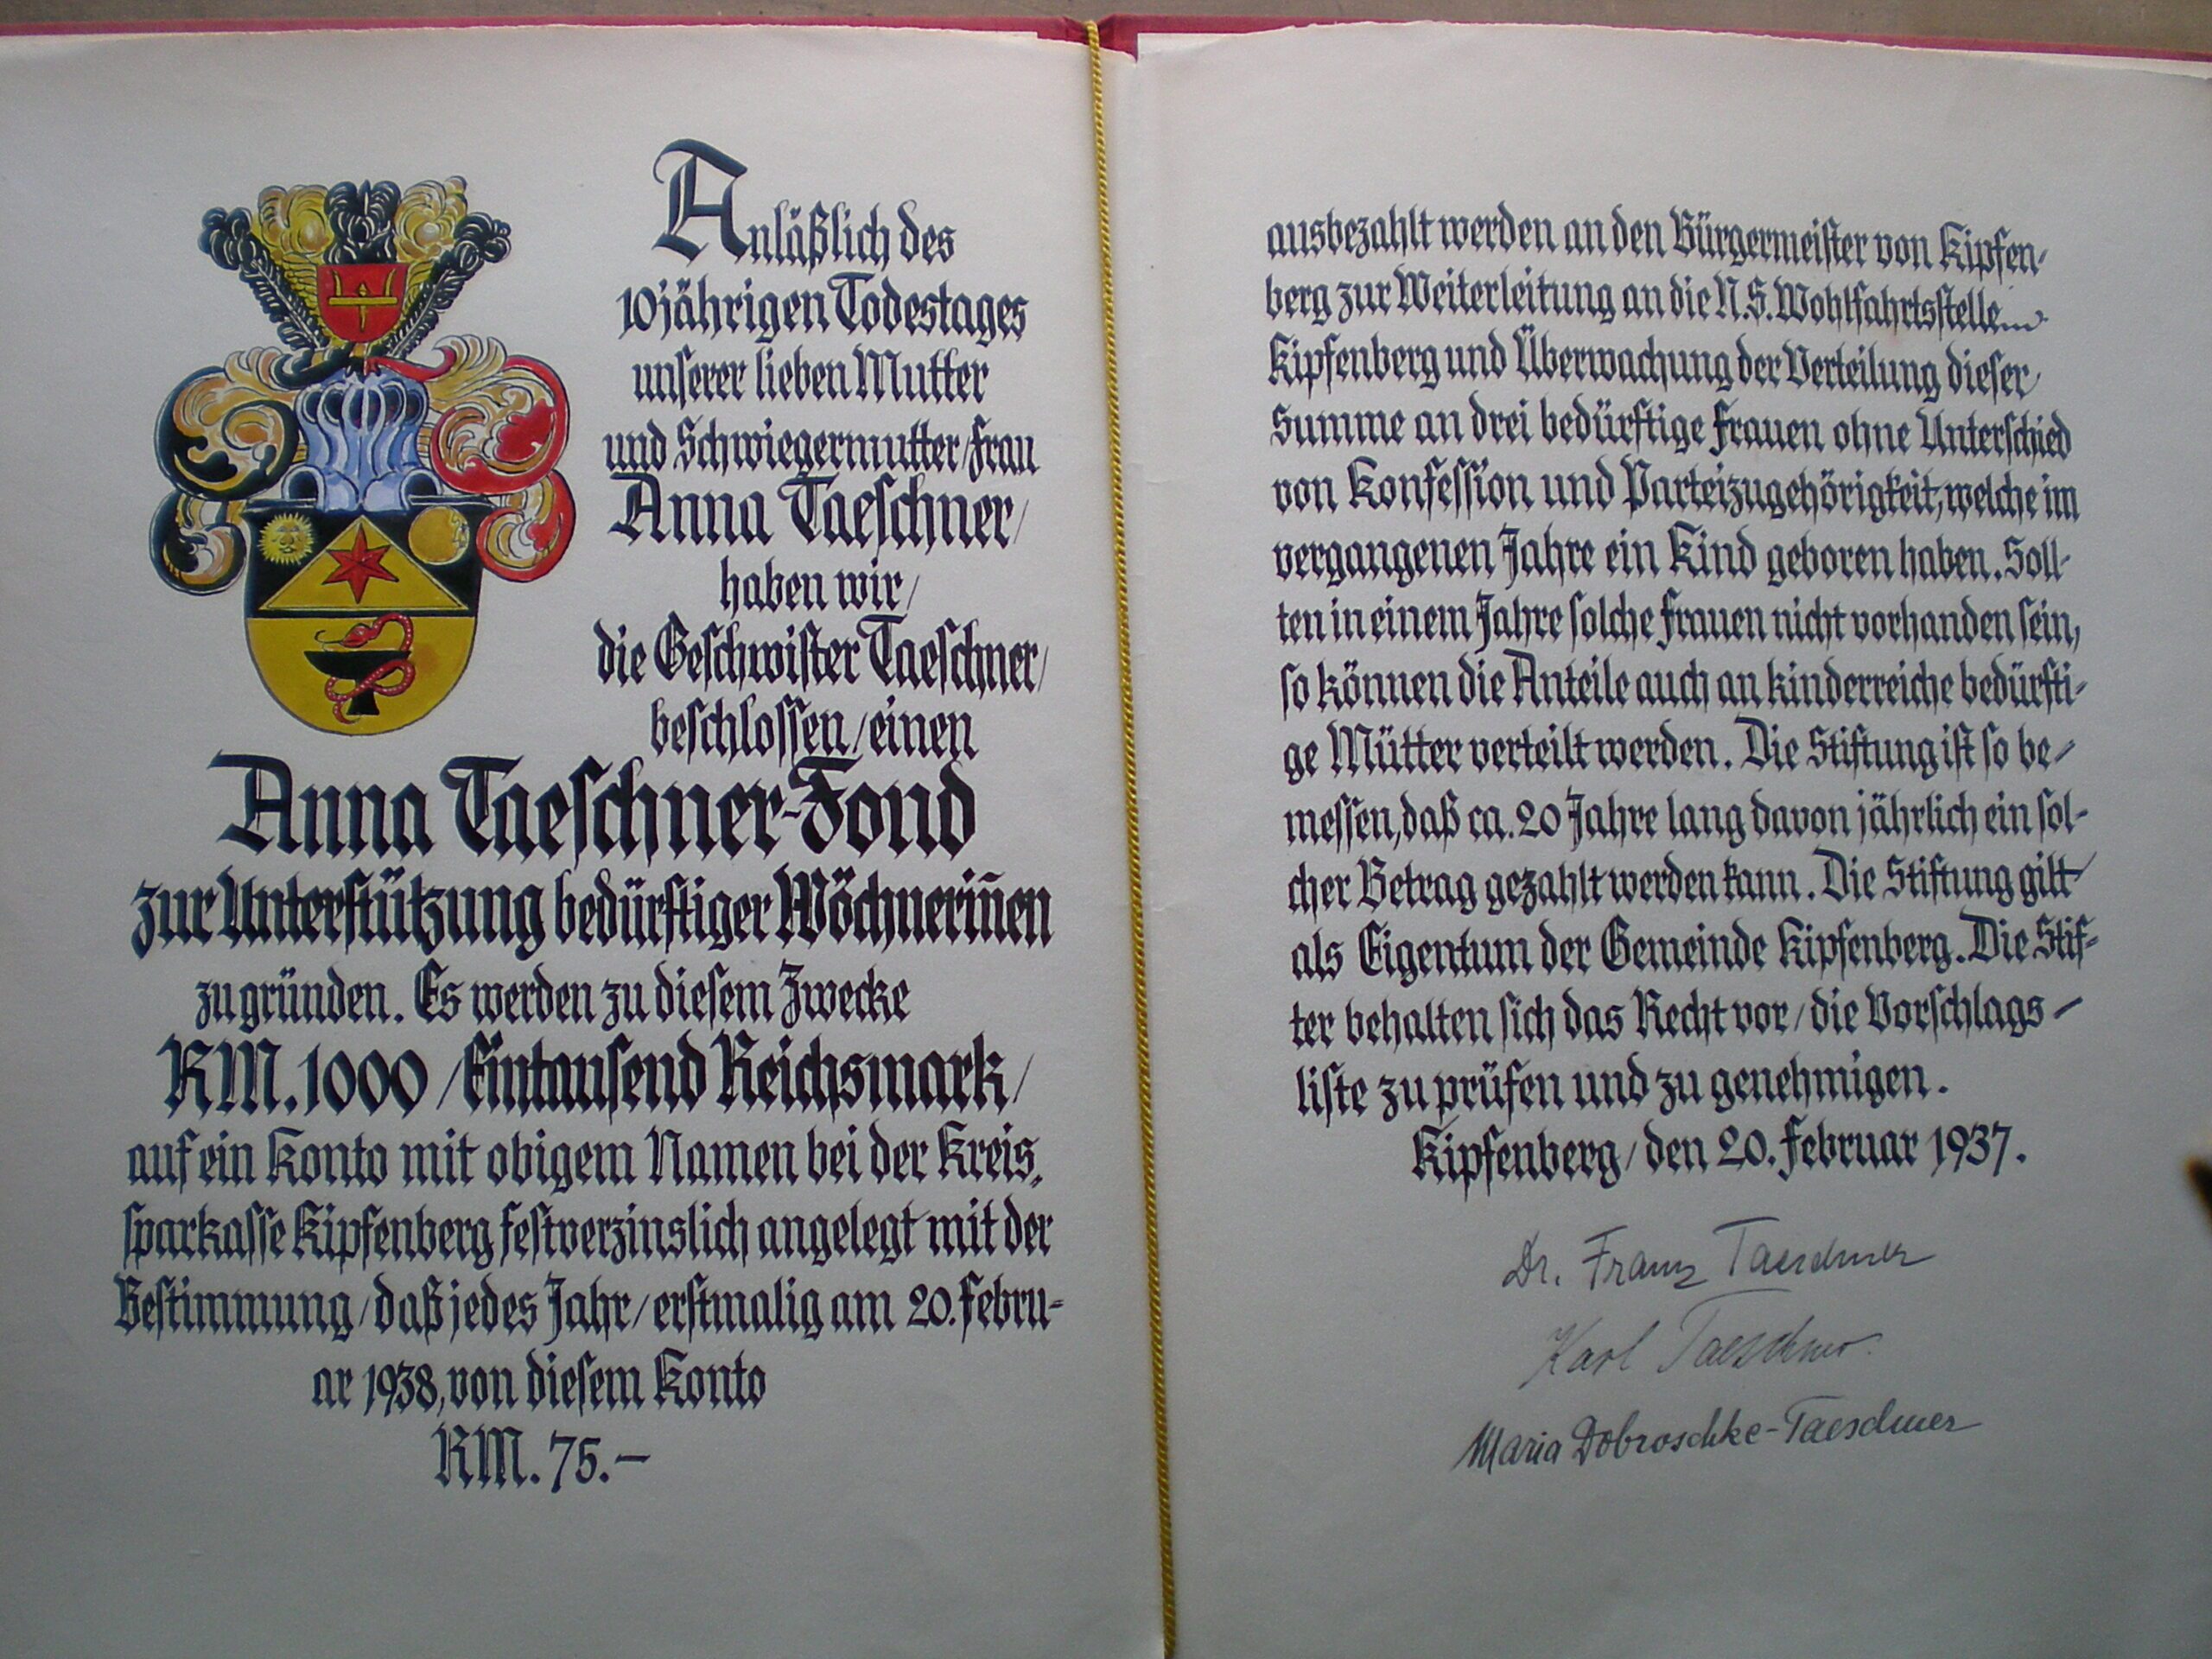 Anläßlich des
10jährigen Todestages
unserer lieben Mutter
und Schwiegermutter/Frau
Anna Taeschner/
haben wir/
die Geschwister Taeschner/
beschlossen/einen
Anna Taeschner-Fond
zur Unterstützung bedürftiger Wöchneriñen
zu gründen. Es werden zu diesem Zwecke
RM. 1000 /Eintausend Reichsmark/
auf ein Konto mit obigem Namen bei der Kreis-
sparkasse Kipfenberg festverzinslich angelegt mit der
Bestimmung/daß jedes Jahr/erstmalig am 20. Febru-
ar 1938, von diesem Konto
RM. 75.–
ausbezahlt werden an den Bürgermeister von Kipfen-
berg zur Weiterleitung an die N.S. Wohlfahrtsstelle
Kipfenberg und Überwachung der Verteilung dieser
Summe an drei bedürftige Frauen ohne Unterschied
von Konfession und Parteizugehörigkeit, welche im
vergangenen Jahre ein Kind geboren haben. Soll-
ten in einem Jahre solche Frauen nicht vorhanden sein,
so können die Anteile auch an kinderreiche bedürfti-
ge Mütter verteilt werden. Die Stiftung ist so be-
messen, daß ca. 20 Jahre lang davon jährlich ein sol-
cher Betrag gezahlt werden kann. Die Stiftung gilt
als Eigentum der Gemeinde Kipfenberg. Die Stif-
ter behalten sich das Recht vor/die Vorschlags-
liste zu prüfen und zu genehmigen.
Kipfenberg/den 20. Februar 1937.
Dr. Franz Taeschner
Karl Taeschner.
Maria Dobroschke-Taeschner